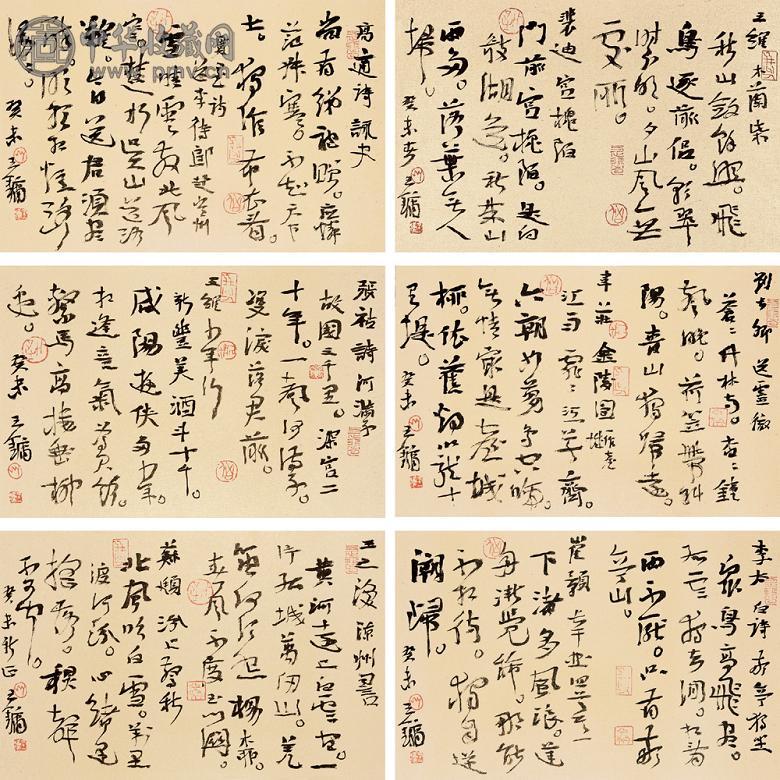 中华收藏网
王維木蘭柴
秋山斂餘照。飛
鳥逐前侣。彩翠
時分明。夕嵐無
處所。
裴迪宫槐陌
門前宫槐陌。是向
欹湖道。秋來山
雨多。落葉无人
掃。
癸未 王鏞
高適詩詠史
尚有绨袍贈。應憐
范叔寒。不知天下
士。猶作布衣看。
賈至詩
送李侍郎赴常州
雪晴雲散北風
寒。楚水吴山道路
難。今日送君須盡
醉。明朝相憶路
漫漫。
癸未王鏞
劉長卿送靈澈
蒼蒼竹林寺。杳杳鐘
聲晚。荷笠帶斜
陽。青山獨歸遠。
韋莊金陵圖
江雨霏霏江草齊。
六朝如夢鳥空啼。
無情最是臺城
柳。依舊烟籠十
里堤。
癸未王鏞
張祜詩何滿子
故國三千里。深宫二
十年。一聲何滿子。
雙淚落君前。
王維少年行
新豐美酒斗十千。
咸陽遊俠多少年。
相逢意氣為君飲。
繫馬高樓垂柳
邊。
癸未王鏞
李太白詩敬亭獨坐
衆鳥高飛盡。
孤雲獨去閒。相看
兩不厭。只有敬
亭山。
崔顥長干曲四之一
下渚多風浪。蓮
舟漸覺稀。那能
不相待。獨自逆
潮歸。
癸未王鏞
王之渙凉州詞
黄河遠上白雲間。一
片孤城萬仞山。羌
笛何須怨楊柳。
春風不度玉門關。
蘇頲汾上驚秋
北風吹白雲。萬里
渡河汾。心緒逢
摇落。秋聲
不可聞。
癸未新正王鏞